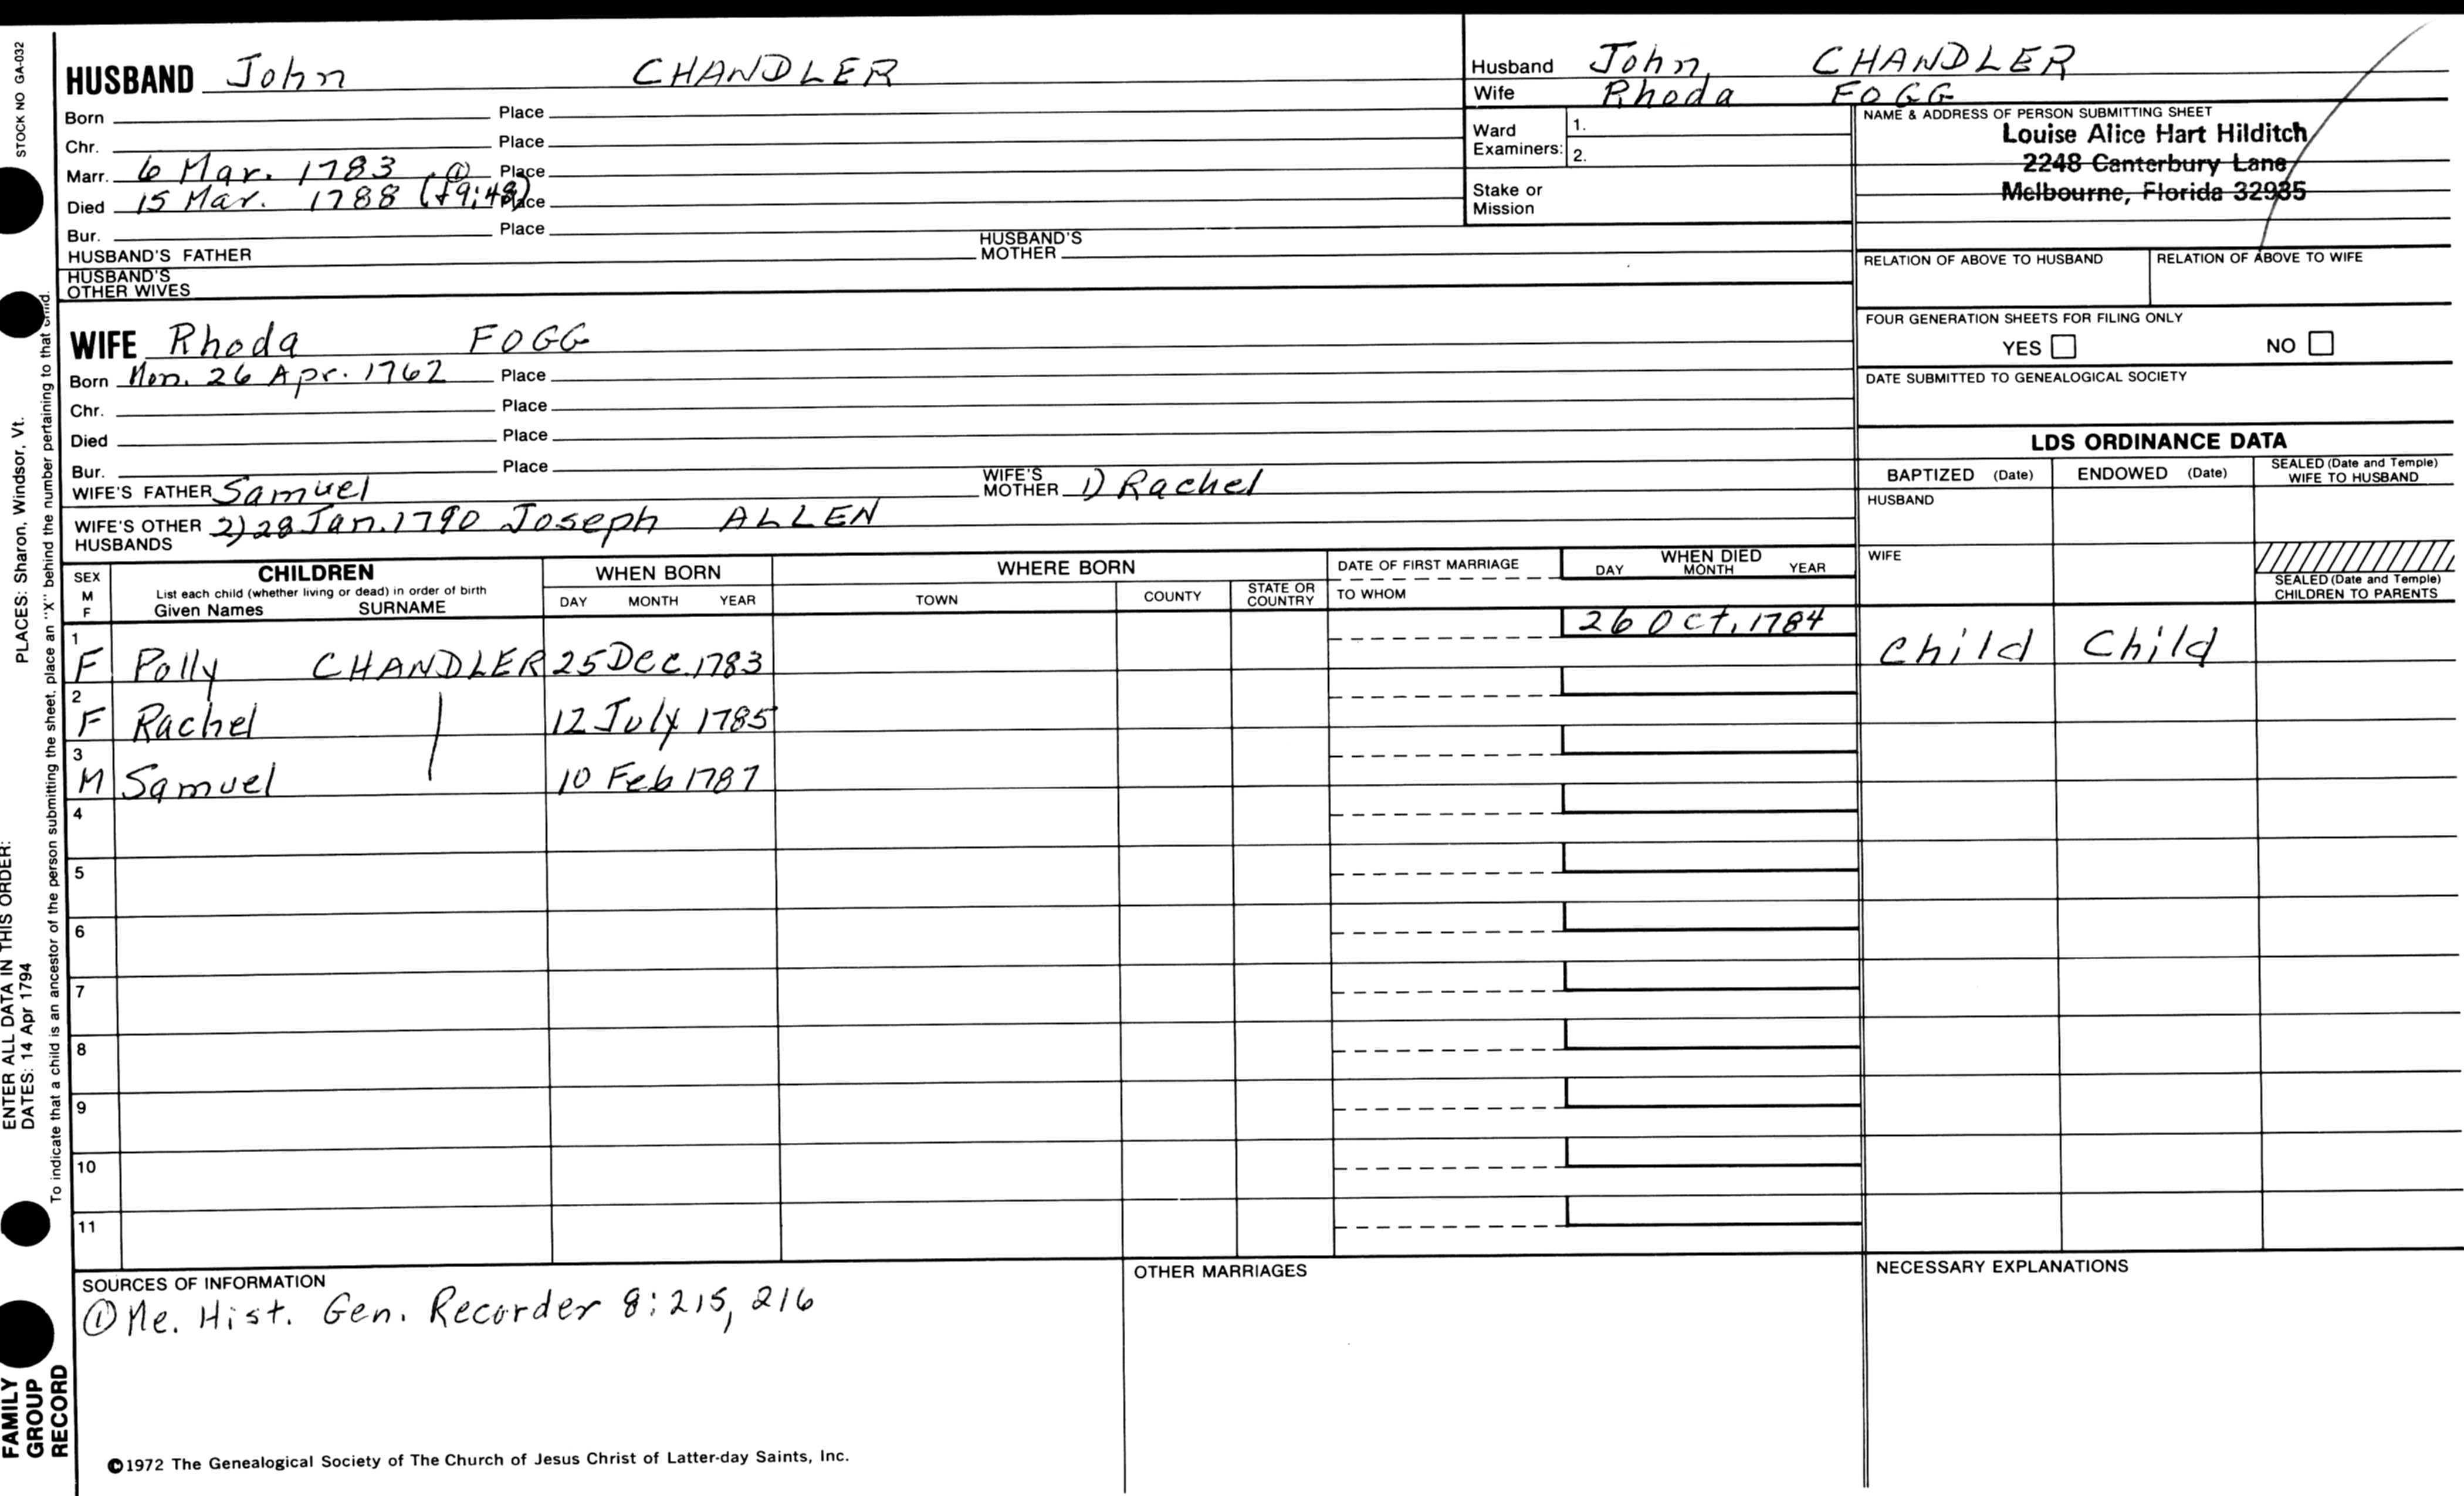 STOCK NO GA-032
HUSBAND John CHANDLER
Born Place
Chr. Place
Marr. 6 Mar. 1783 ① Place
Died 15 Mar. 1788 Place
Bur. Place
HUSBAND'S FATHER HUSBAND'S MOTHER
HUSBAND'S OTHER WIVES
WIFE Rhoda FOGG
Born Mon. 26 Apr. 1762 Place
Chr. Place
Died Place
Bur. Place
WIFE'S FATHER Samuel WIFE'S MOTHER 1) Rachel
WIFE'S OTHER HUSBANDS 2) 28 Jan. 1790 Joseph ALLEN
Husband John CHANDLER
Wife Rhoda FOGG
Ward Examiners: 1.
2.
Stake or Mission
NAME & ADDRESS OF PERSON SUBMITTING SHEET
Louise Alice Hart Hilditch
2248 Canterbury Lane
Melbourne, Florida 32935
RELATION OF ABOVE TO HUSBAND RELATION OF ABOVE TO WIFE
FOUR GENERATION SHEETS FOR FILING ONLY
YES NO
DATE SUBMITTED TO GENEALOGICAL SOCIETY
LDS ORDINANCE DATA
BAPTIZED (Date) ENDOWED (Date) SEALED (Date and Temple) WIFE TO HUSBAND
HUSBAND
WIFE
SEALED (Date and Temple) CHILDREN TO PARENTS
SEX M F CHILDREN WHEN BORN WHERE BORN DATE OF FIRST MARRIAGE WHEN DIED
List each child (whether living or dead) in order of birth
Given Names SURNAME DAY MONTH YEAR TOWN COUNTY STATE OR COUNTRY TO WHOM DAY MONTH YEAR
1 F Polly CHANDLER 25 Dec. 1783 26 Oct. 1784 Child Child
2 F Rachel | 12 July 1785
3 M Samuel | 10 Feb 1787
4
5
6
7
8
9
10
11
SOURCES OF INFORMATION
① Me. Hist. Gen. Recorder 8:215, 216
OTHER MARRIAGES
NECESSARY EXPLANATIONS
©1972 The Genealogical Society of The Church of Jesus Christ of Latter-day Saints, Inc.
ENTER ALL DATA IN THIS ORDER:
DATES: 14 Apr 1794 PLACES: Sharon, Windsor, Vt.
To indicate that a child is an ancestor of the person submitting the sheet, place an "X" behind the number pertaining to that child.
FAMILY
GROUP
RECORD